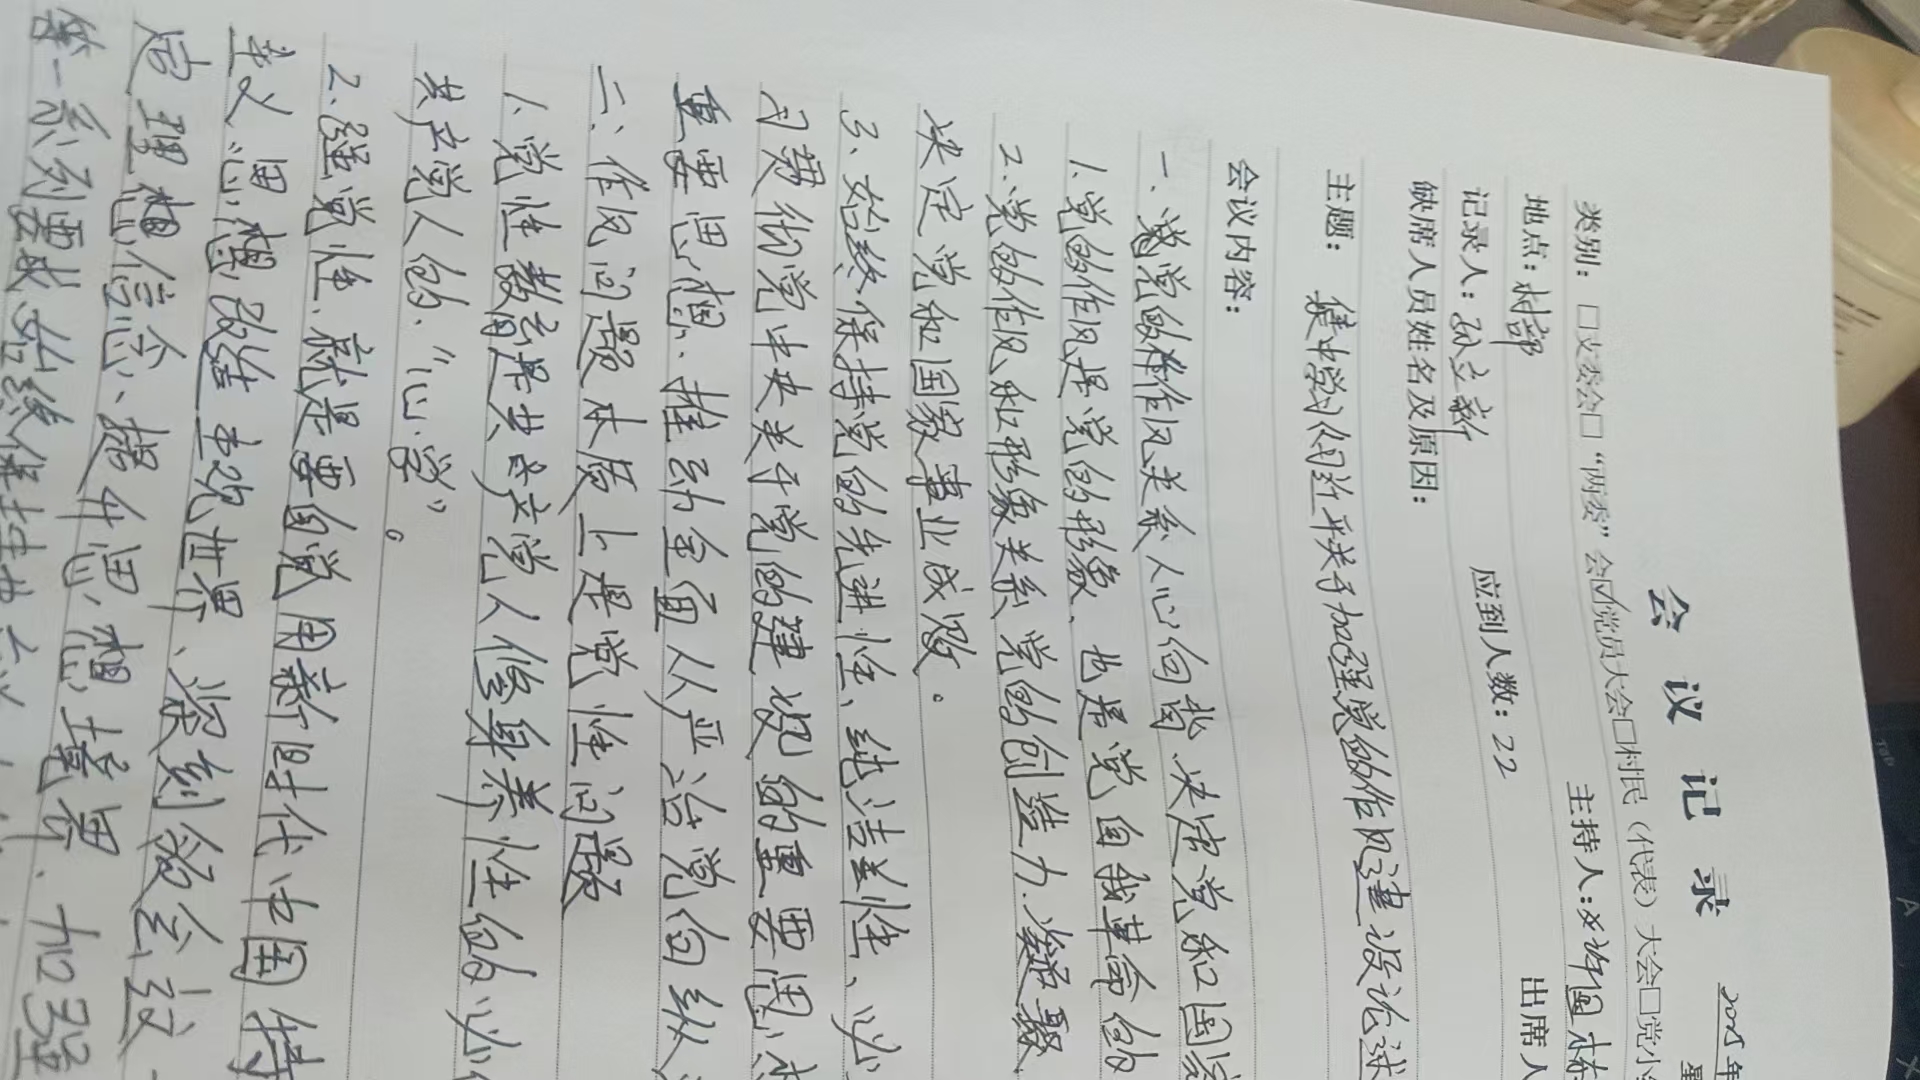 会议记录
2025年
星
类别：□支委会□“两委”会☑党员大会□村民（代表）大会□党小
地点：村部 主持人：
记录人：孙立新 应到人数：22 出席人
缺席人员姓名及原因：
主题：集中学习习近平关于加强党的作风建设论述
会议内容：
一、党的作风关系人心向背 决定党和国家
1.党的作风是党的形象、也是党自我革命的
2.党的作风和形象关系党的创造力.凝聚.
决定党和国家事业成败。
3、始终保持党的先进性、纯洁性、必
习贯彻党中央关于党的建设的重要思想
重要思想、推动全面从严治党向纵
二、作风问题本质上是党性问题
1、党性教育是共产党人修身养性的必
共产党人的.“心学”。
2.强党性.就是要自觉用新时代中国特
主义思想改造主观世界、深刻领会这
定理想信念、提升思想境界.加强
等一系列要求始终保持共